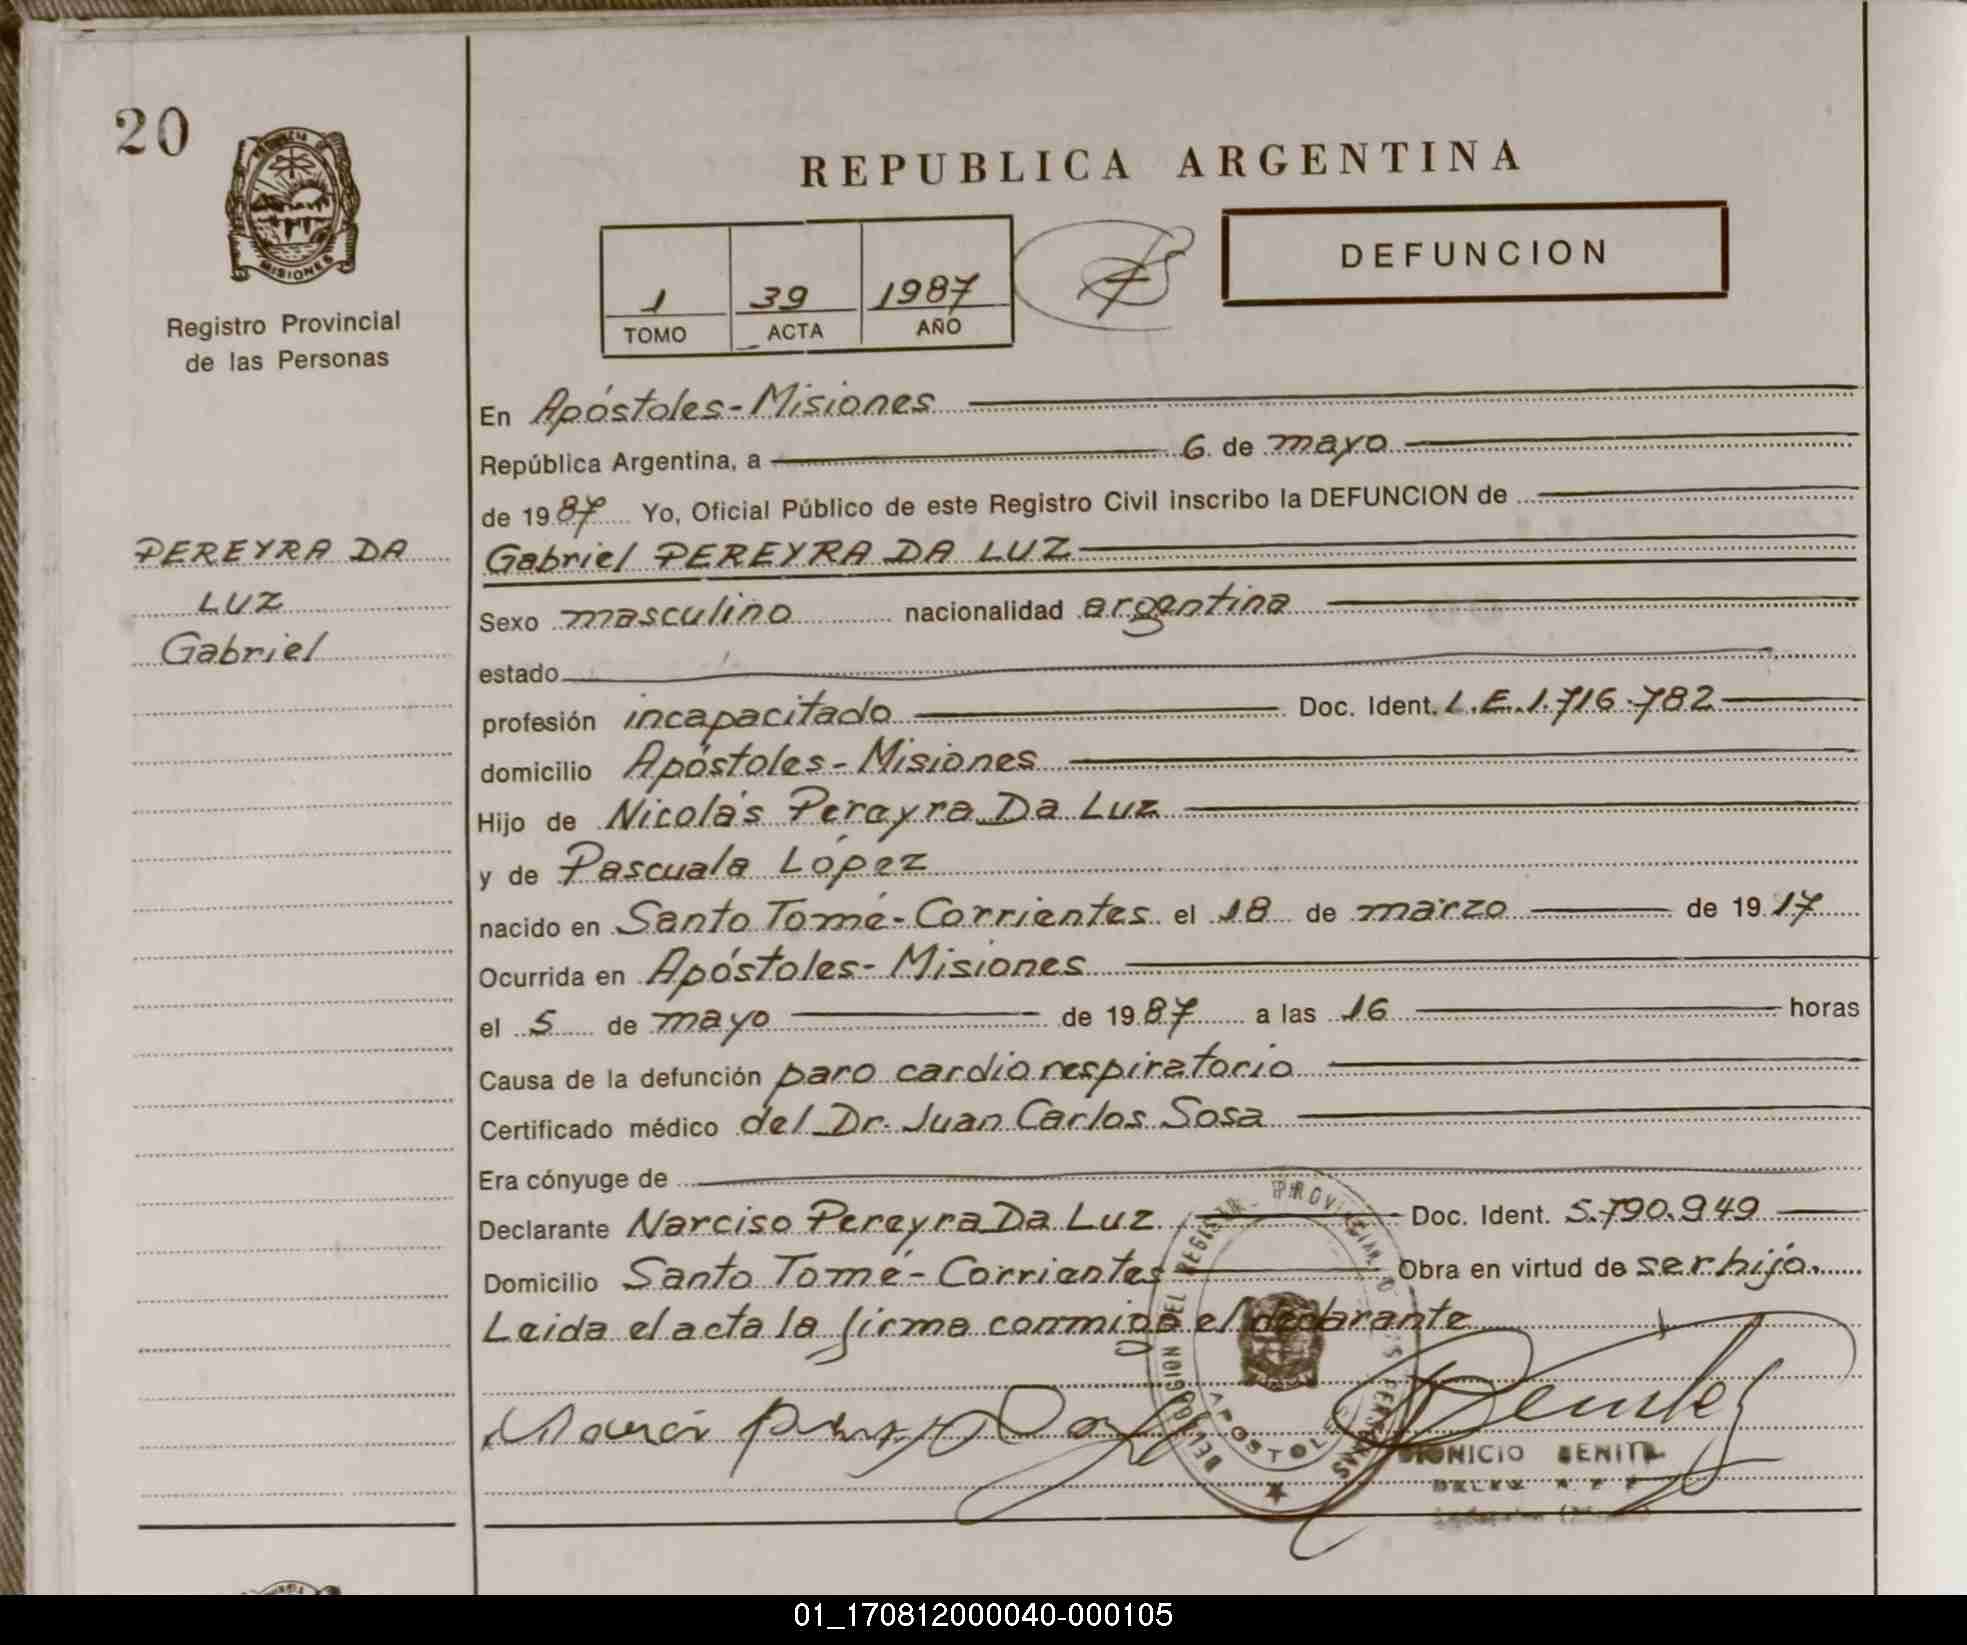 20
PROVINCIA DE
MISIONES
Registro Provincial
de las Personas
REPUBLICA ARGENTINA
1 39 1987
TOMO ACTA AÑO
DEFUNCION
En Apóstoles - Misiones
República Argentina, a 6 de mayo
de 1987 Yo, Oficial Público de este Registro Civil inscribo la DEFUNCION de
PEREYRA DA
LUZ
Gabriel
Gabriel PEREYRA DA LUZ
Sexo masculino nacionalidad argentina
estado
profesión incapacitado Doc. Ident. L.E.1.716.782
domicilio Apóstoles - Misiones
Hijo de Nicolás Pereyra Da Luz
y de Pascuala López
nacido en Santo Tomé - Corrientes el 18 de marzo de 1917
Ocurrida en Apóstoles - Misiones
el 5 de mayo de 1987 a las 16 horas
Causa de la defunción paro cardiorespiratorio
Certificado médico del Dr. Juan Carlos Sosa
Era cónyuge de
Declarante Narciso Pereyra Da Luz Doc. Ident. 5.790.949
Domicilio Santo Tomé - Corrientes Obra en virtud de ser hijo.
Leida el acta la firma conmigo el declarante
DELEGACION DEL REGISTRO PROVINCIAL DE LAS PERSONAS
APOSTOLES
DIONICIO BENITEZ
01_170812000040-000105